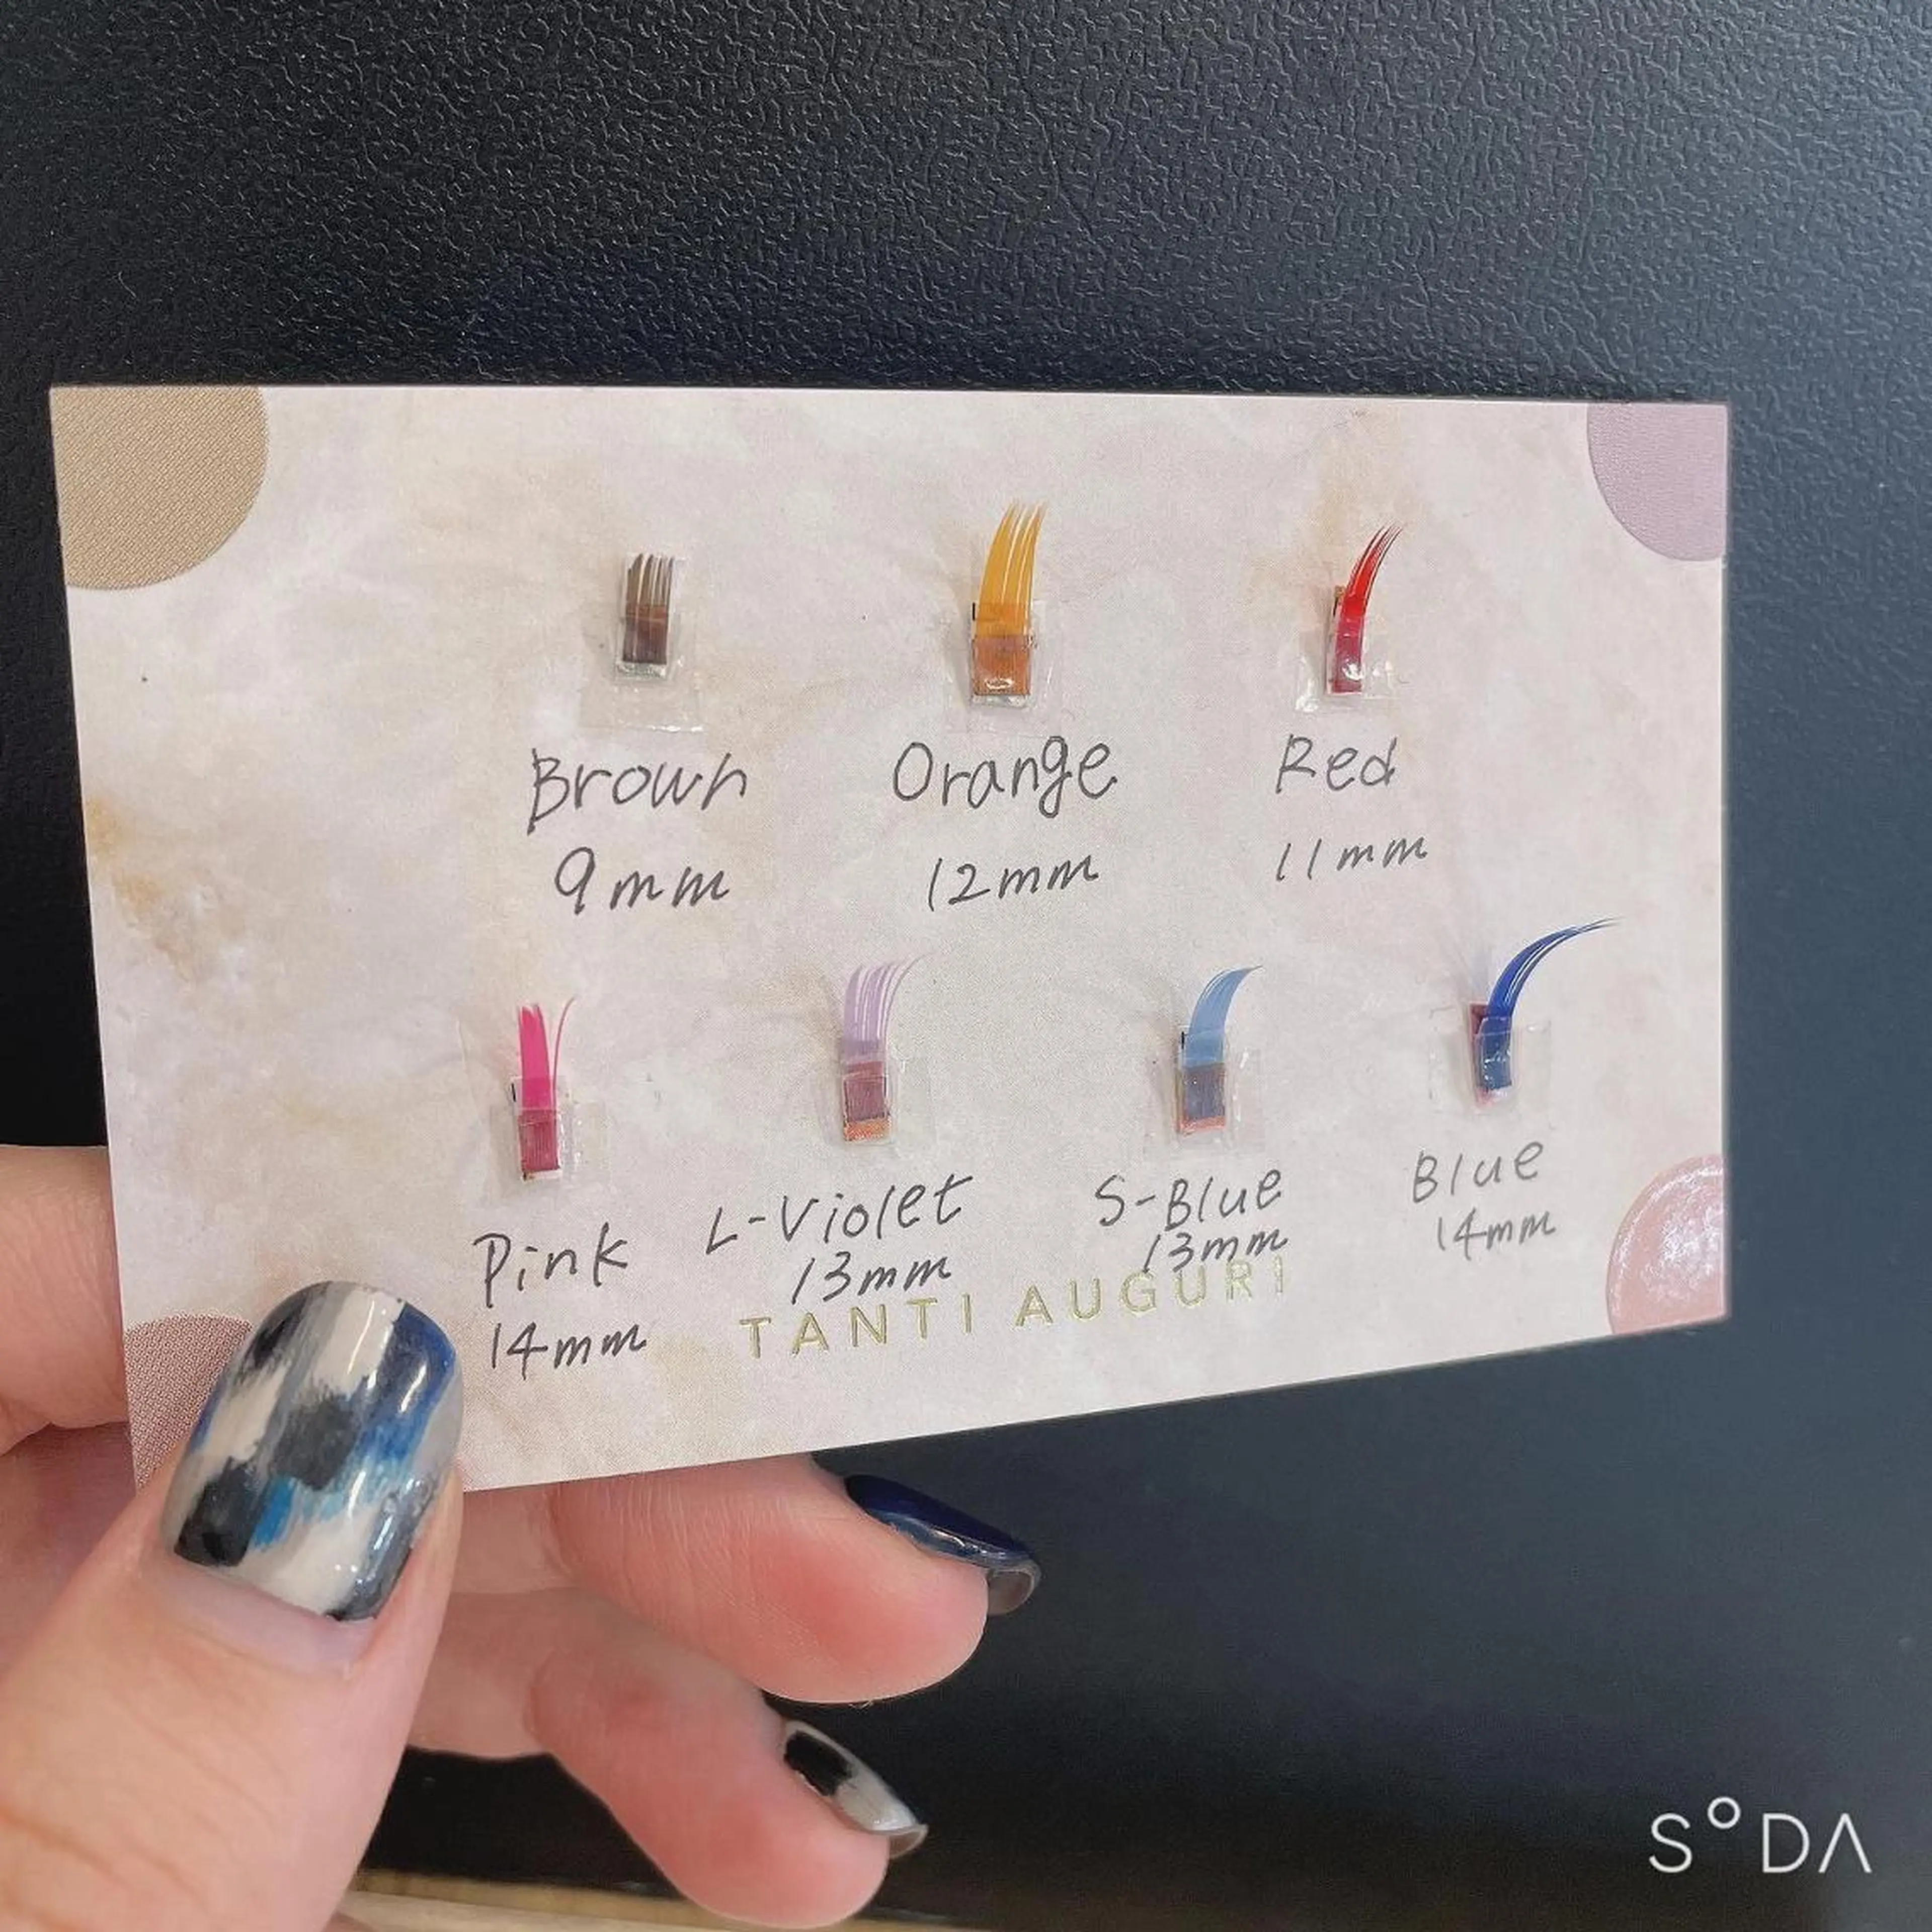 Brown
9mm
Orange
12mm
Red
11mm
Pink
14mm
L-Violet
13mm
S-Blue
13mm
Blue
14mm
TANTI AUGURI
SODA